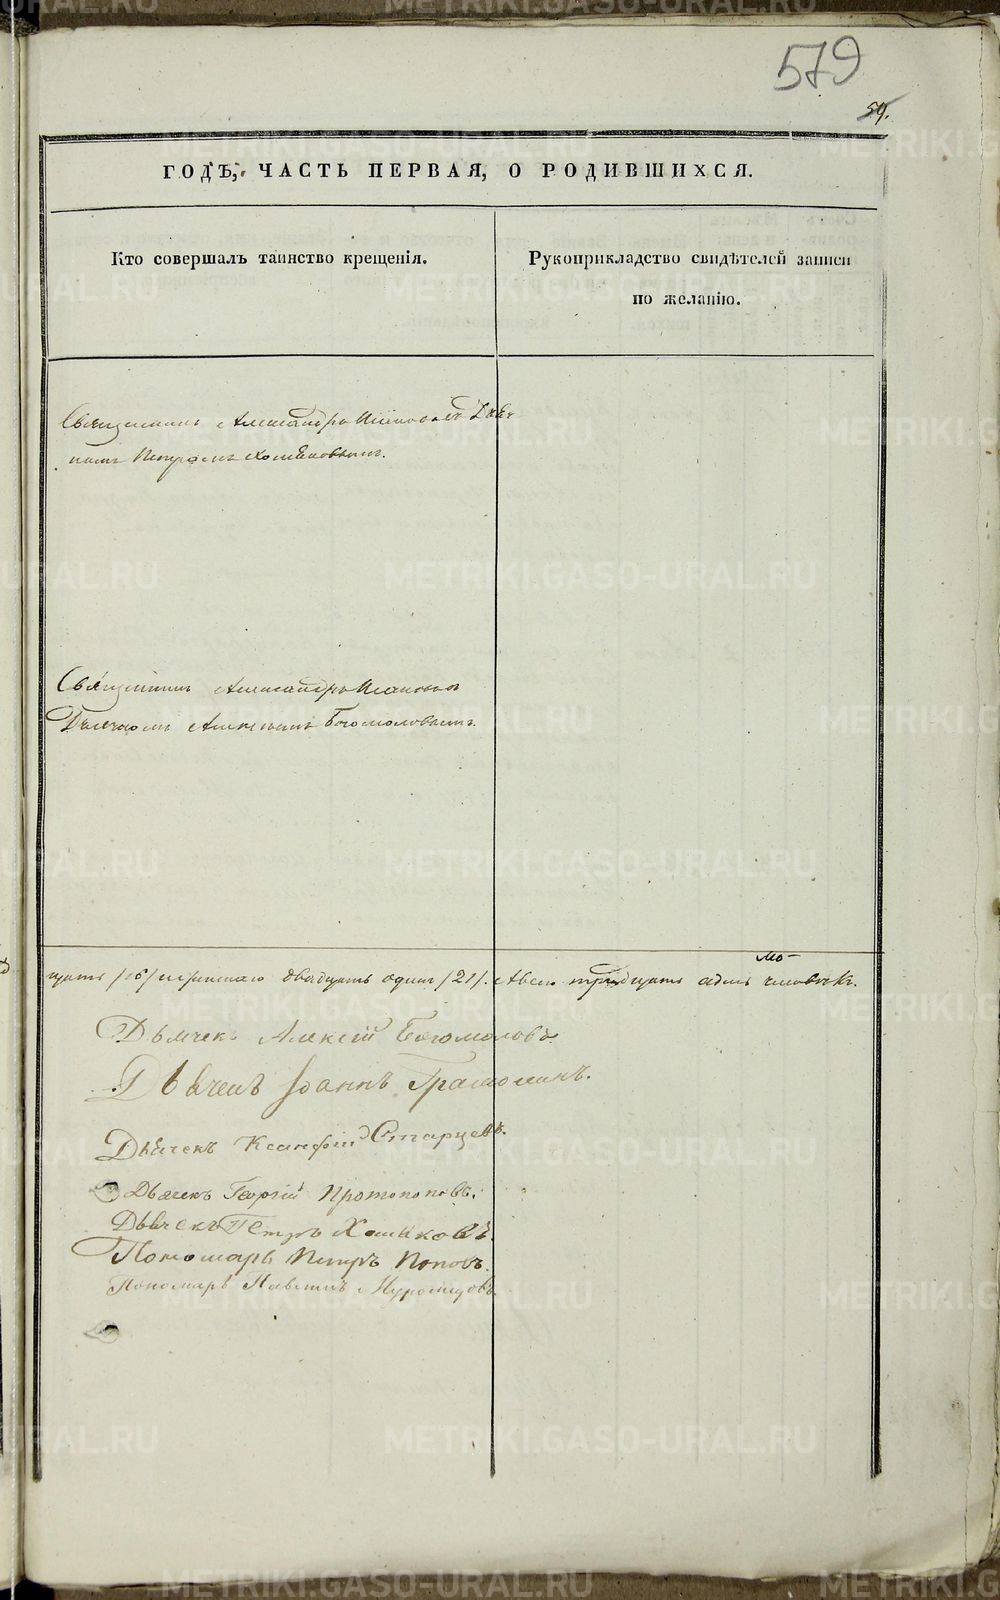 579
54.
ГОДѢ, ЧАСТЬ ПЕРВАЯ, О РОДИВШИХСЯ.
Кто совершалъ таинство крещенія.
Рукоприкладство свидѣтелей записи
по желанію.
Священникъ Александръ Дьяч-
комъ Петромъ Хомяковымъ.
Священникъ Александръ
Дьячкомъ Алексѣемъ Богомоловымъ.
двадцать одинъ /21/. А всего тридцать человѣкъ.
Дьячекъ Алексій Богомоловъ
Дьячекъ Іоаннъ Грамолинъ.
Дьячекъ Ксанфій Старцевъ.
Дьячекъ Георгій Протопоповъ.
Дьячекъ Петръ Хомяковъ.
Пономарь Петръ Поповъ.
Пономарь Муромцовъ
METRIKI.GASO-URAL.RU